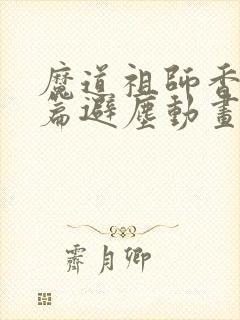 魔道祖師香
篇避塵動畫
霽月卿